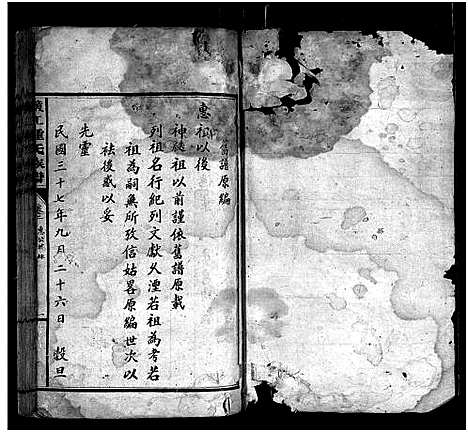 舊譜原編
惠祖以後
神從祖以前謹依舊譜原載
列祖名行紀列文獻久湮若祖為考若
祖為嗣無所攷信姑畧原編世次以
祛後惑以妥
先靈
民國三十七年九月二十六日 穀旦